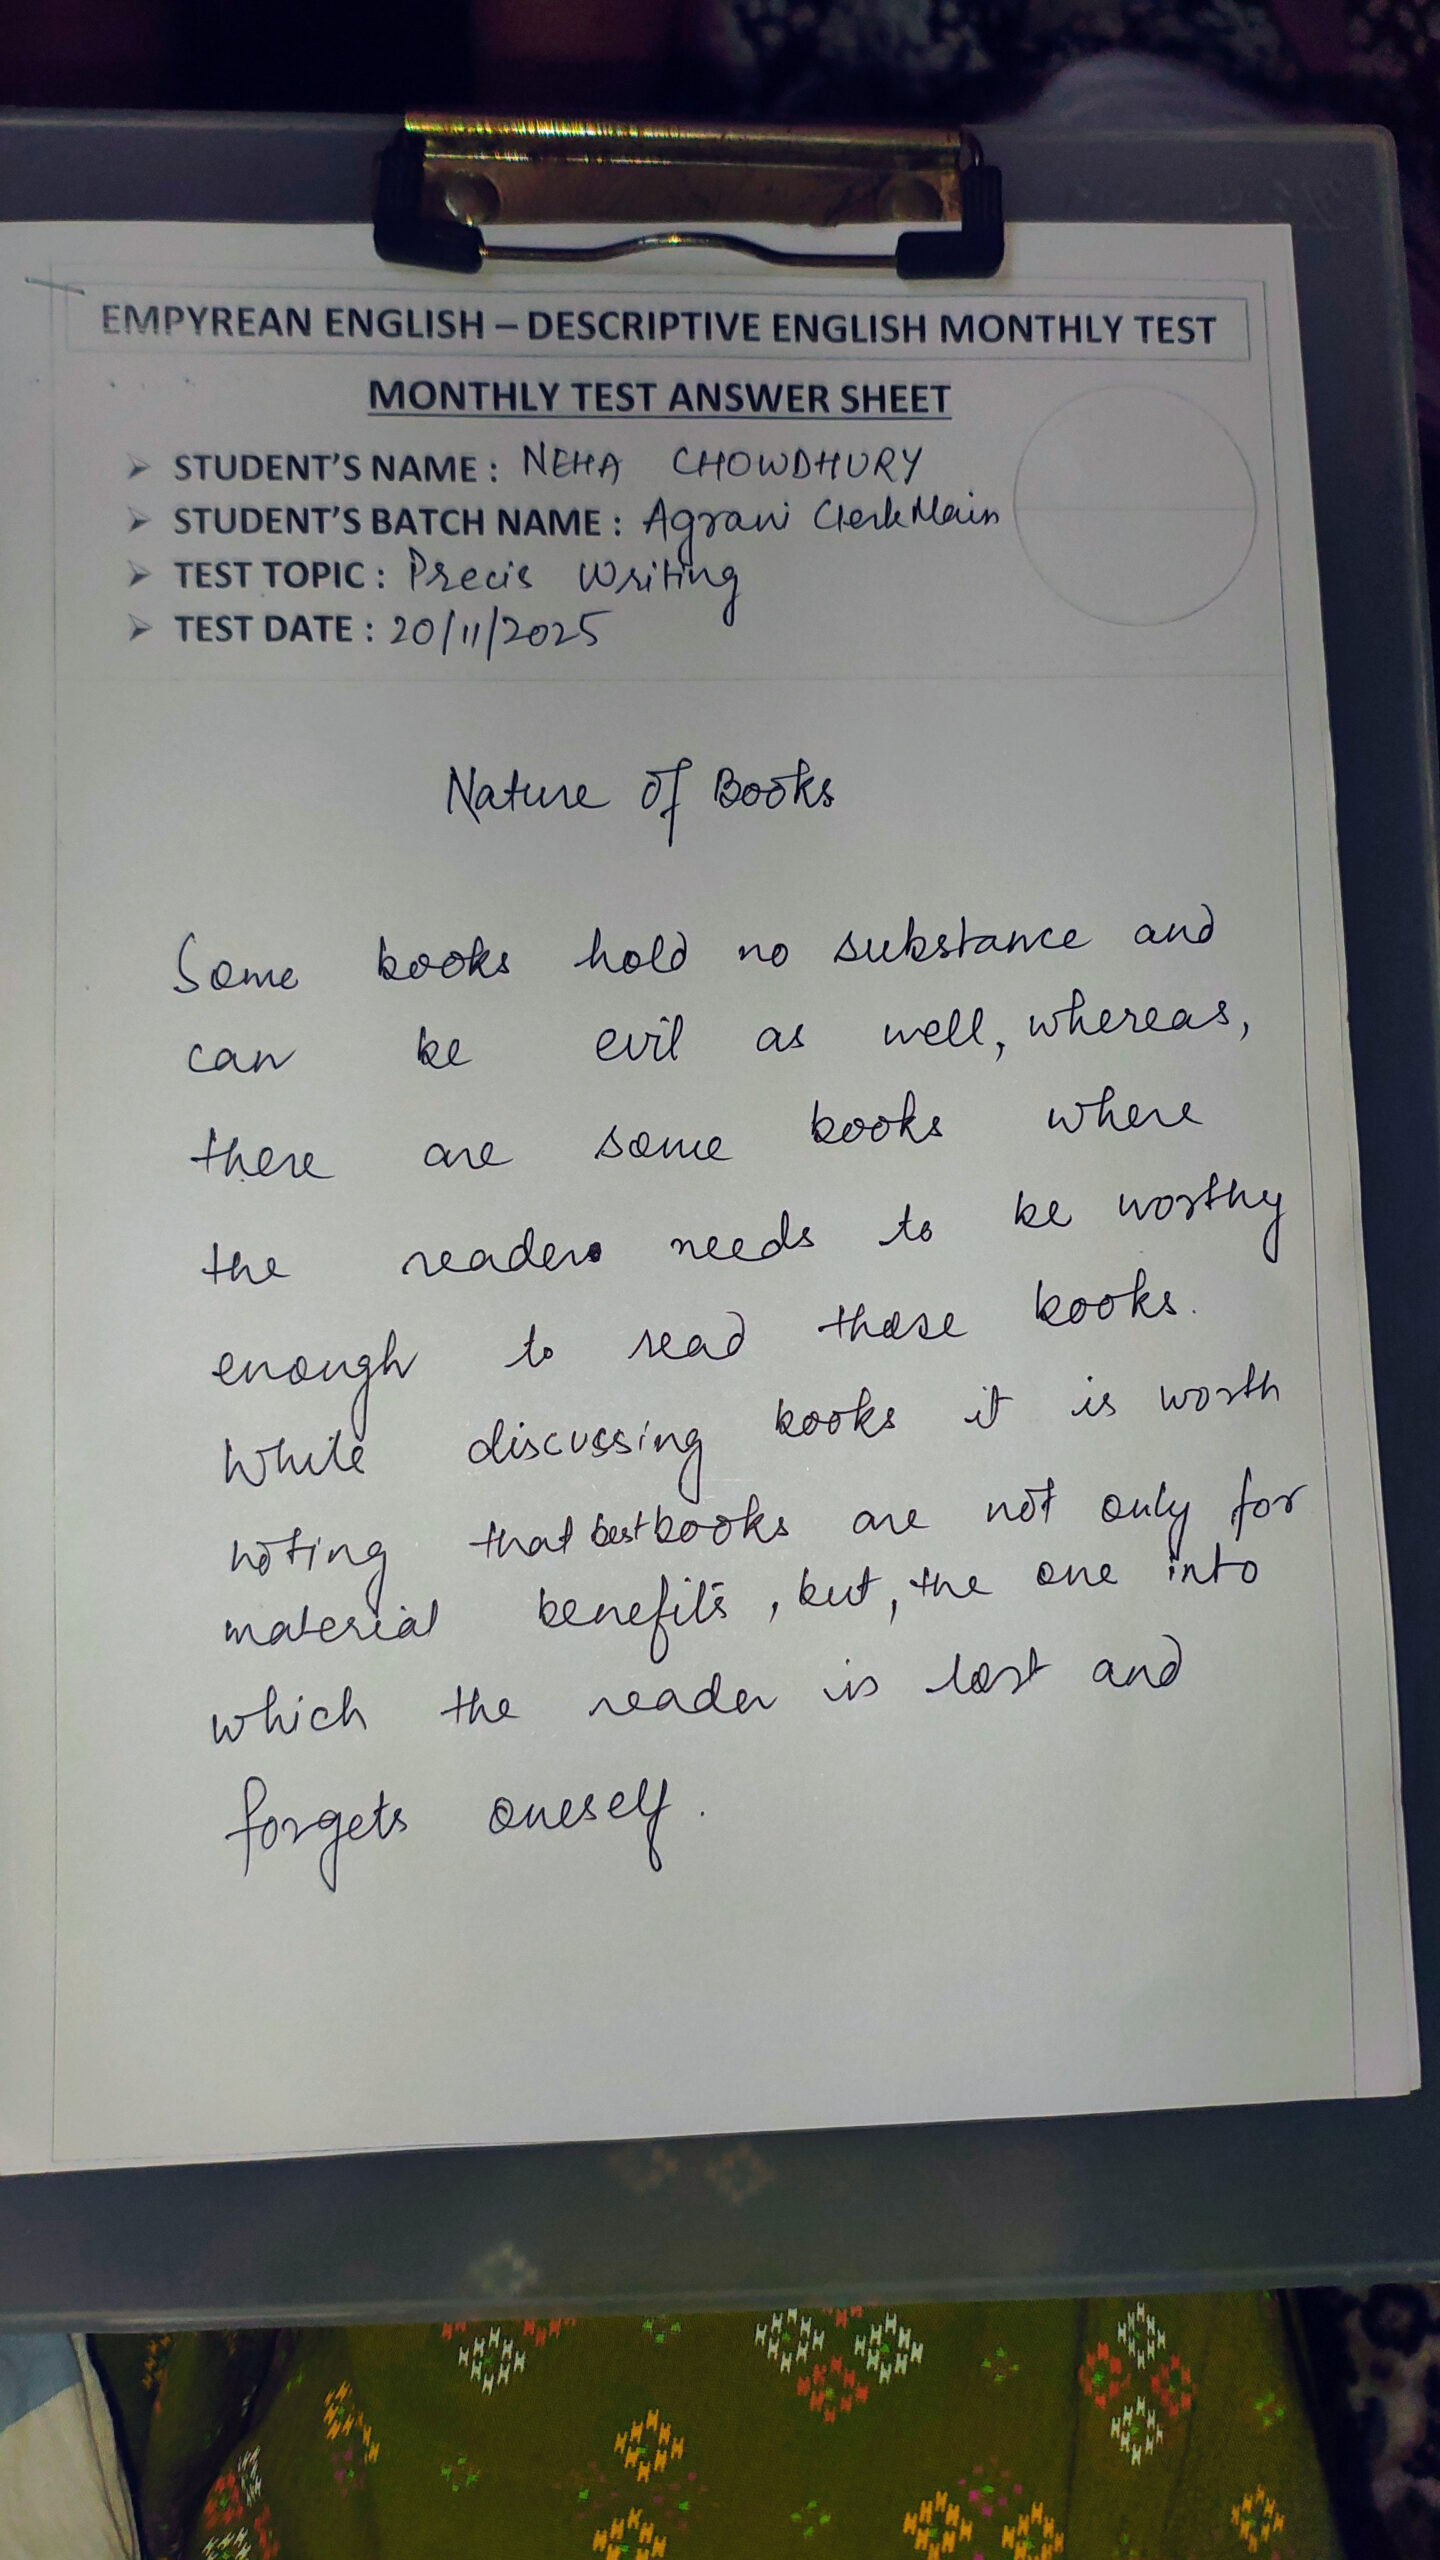 EMPYREAN ENGLISH – DESCRIPTIVE ENGLISH MONTHLY TEST
MONTHLY TEST ANSWER SHEET
➢ STUDENT'S NAME : NEHA CHOWDHURY
➢ STUDENT'S BATCH NAME : Agrani Clerk Main
➢ TEST TOPIC : Precis Writing
➢ TEST DATE : 20/11/2025
Nature of Books
Some books hold no substance and
can be evil as well, whereas,
there are some books where
the reader needs to be worthy
enough to read those books.
While discussing books it is worth
noting that best books are not only for
material benefits, but, the one into
which the reader is lost and
forgets oneself.